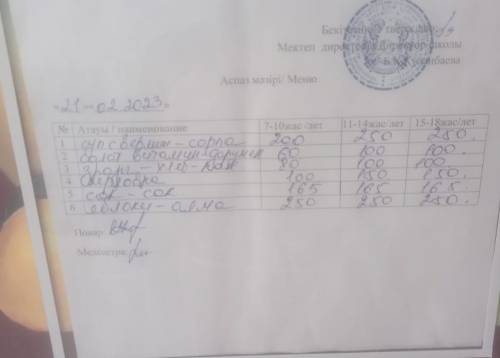 Мектеп директоры/Директор школы
Аспаз мәзірі/ Меню
«21-02.2023»
№ Атауы / наименование 7-10жас /лет 11-14жас/лет 15-18жас/лет
1 суп с - сорпа 200 250 250.
2 салат витамин-дәрумен 60 100 100.
3 - хлеб - нан 100 100.
4 100 150 150.
5 сок - сок 165 165 165.
6 яблоки - алма 250 250 250.
Повар:
Медсестра: